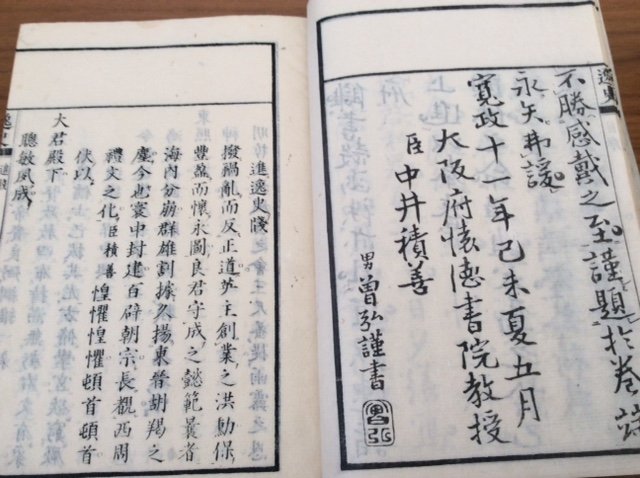 逸史
不勝感戴之至謹題於卷端
永矢弗諼
寛政十一年己未夏五月
大阪府懐徳書院教授
臣中井積善
男曽弘謹書
曽弘
進逸史牋
撥禍亂而反正道英主創業之洪勳保
豐盈而懷永圖良君守成之懿範曩者
海内分崩群雄割據久揚東晉胡羯之
塵今也寰中封建百辟朝宗長觀西周
禮文之化臣積善惶懼惶懼頓首頓首
伏以
大君殿下
聰敏夙成
逸史